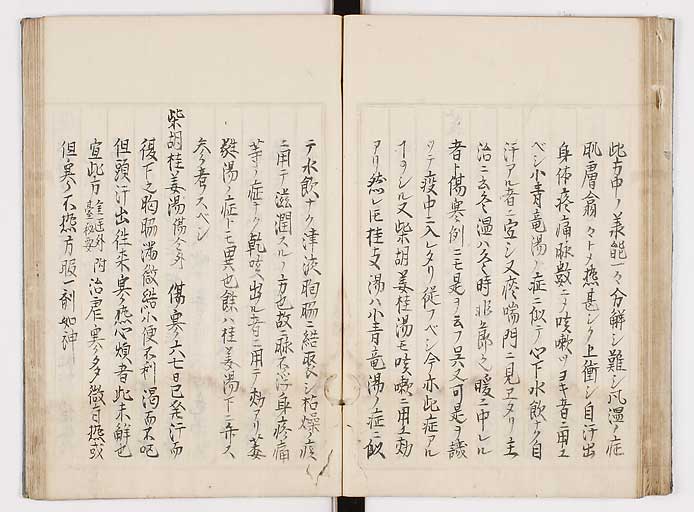 此方中ノ薬能一々分解シ難シ风温ノ症
肌膚翕々トメ熱甚シク上衝シ自汗出
身体疼痛脉数ニ乄咳嗽ツヨキ者ニ用ユ
ベシ小青竜湯ノ症ニ似テ心下水飲ナク自
汗アル者ニ宜シ又痰喘門ニ見ヱタリ圭
治ニ云冬温ハ冬ノ時非節之暖ニ中レル
者ト傷寒例ニモ是ヲ云フ呉又可是ヲ譏
ツテ疫中ニ入レタリ従フベシ今亦此症アル
ヿヨシル又柴胡姜桂湯モ咳嗽ニ用ユ効
アリ然レ𪜈桂支湯ハ小青竜湯ノ症ニ似
テ水飲ナク津液胸脇ニ結聚シ枯燥ノ痰
ニ用テ滋潤スルノ方也故ニ脉不浮身疼痛
等ノ症ナク乾咳出ル者ニ用テ効アリ萎
蕤湯ノ症トモ異也餘ハ桂姜湯下ニ弁ス
参考スベシ
柴胡桂姜湯 傷寒六七日已発汗而
復下之胸脇満微結小便不利渇而不呕
但頭汗出往来寒熱心煩者此未解也
宜此方 附 治瘧寒多微有熱或
但寒不熱方服一剤如神